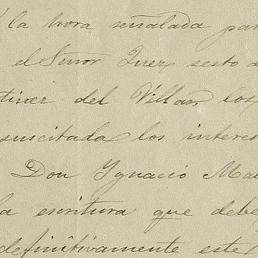 la hora señalada par
el Señor Juez sesto d
tinez del Villar los
suscitada los interes
Don Ygnacio Ma
la escritura que debe
definitivamente este